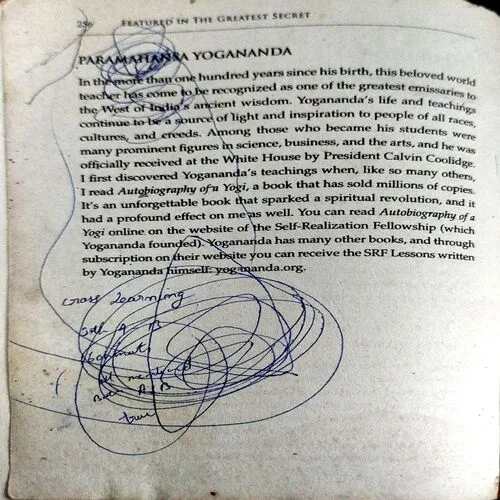 256 FEATURED IN THE GREATEST SECRET
PARAMAHANSA YOGANANDA
In the more than one hundred years since his birth, this beloved world
teacher has come to be recognized as one of the greatest emissaries to
the West of India's ancient wisdom. Yogananda's life and teachings
continue to be a source of light and inspiration to people of all races,
cultures, and creeds. Among those who became his students were
many prominent figures in science, business, and the arts, and he was
officially received at the White House by President Calvin Coolidge.
I first discovered Yogananda's teachings when, like so many others,
I read Autobiography of a Yogi, a book that has sold millions of copies.
It's an unforgettable book that sparked a spiritual revolution, and it
had a profound effect on me as well. You can read Autobiography of a
Yogi online on the website of the Self-Realization Fellowship (which
Yogananda founded). Yogananda has many other books, and through
subscription on their website you can receive the SRF Lessons written
by Yogananda himself: yogananda.org.
Learning
A B
true